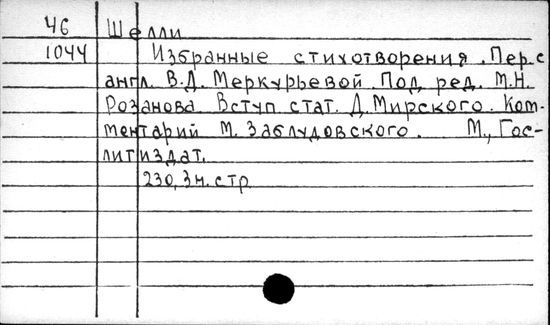 46 Шелли
1044 Избранные стихотворения. Пер. с
англ. В.Д. Меркурьевой. Под ред. М.Н.
Розанова Вступ стат. Д. Мирского. Ком-
ментарий М. Заблудовского. М., Гос-
литиздат.
230, 3 н. стр